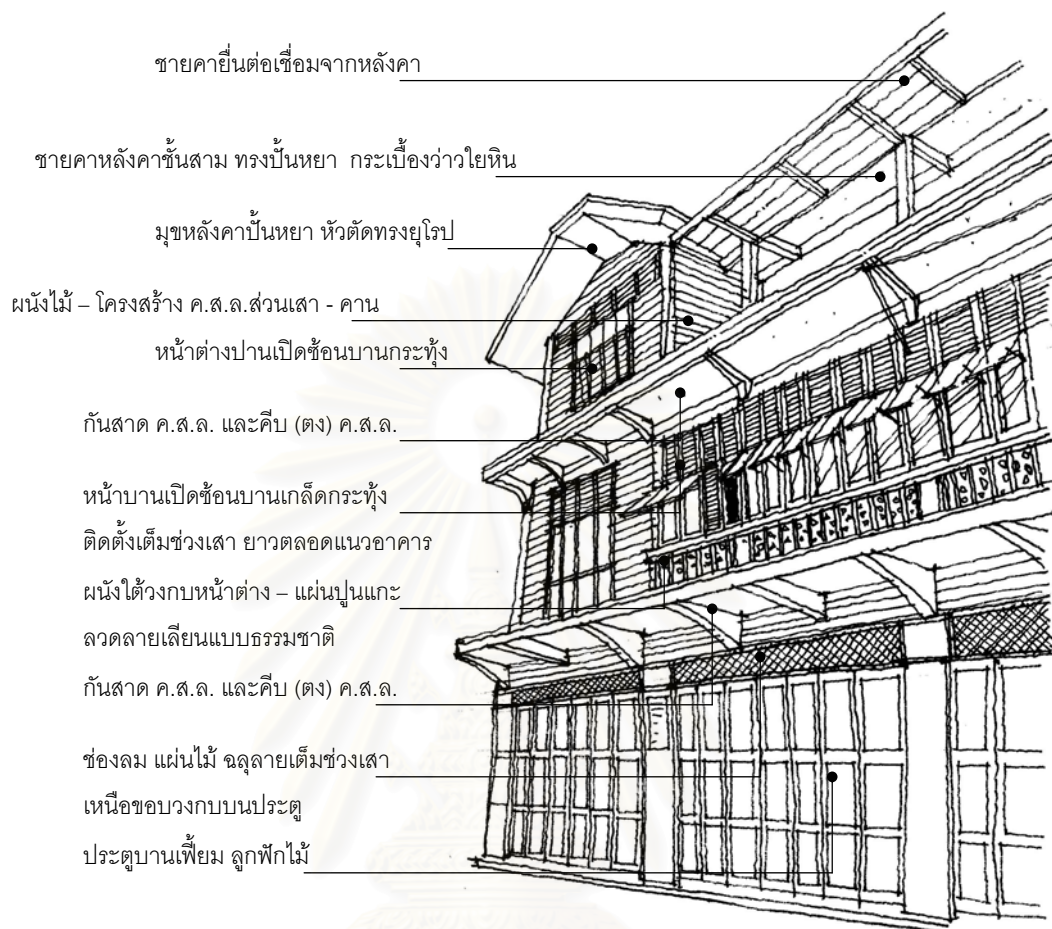 ชายคายื่นต่อเชื่อมจากหลังคา
ชายคาหลังคาชั้นสาม ทรงปั้นหยา  กระเบื้องว่าวใยหิน
มุขหลังคาปั้นหยา หัวตัดทรงยุโรป
ผนังไม้ – โครงสร้าง ค.ส.ล.ส่วนเสา - คาน
หน้าต่างปานเปิดซ้อนบานกระทุ้ง
กันสาด ค.ส.ล. และคีบ (ตง) ค.ส.ล.
หน้าบานเปิดซ้อนบานเกล็ดกระทุ้ง
ติดตั้งเต็มช่วงเสา ยาวตลอดแนวอาคาร
ผนังใต้วงกบหน้าต่าง – แผ่นปูนแกะ
ลวดลายเลียนแบบธรรมชาติ
กันสาด ค.ส.ล. และคีบ (ตง) ค.ส.ล.
ช่องลม แผ่นไม้ ฉลุลายเต็มช่วงเสา
เหนือขอบวงกบบนประตู
ประตูบานเฟี้ยม ลูกฟักไม้